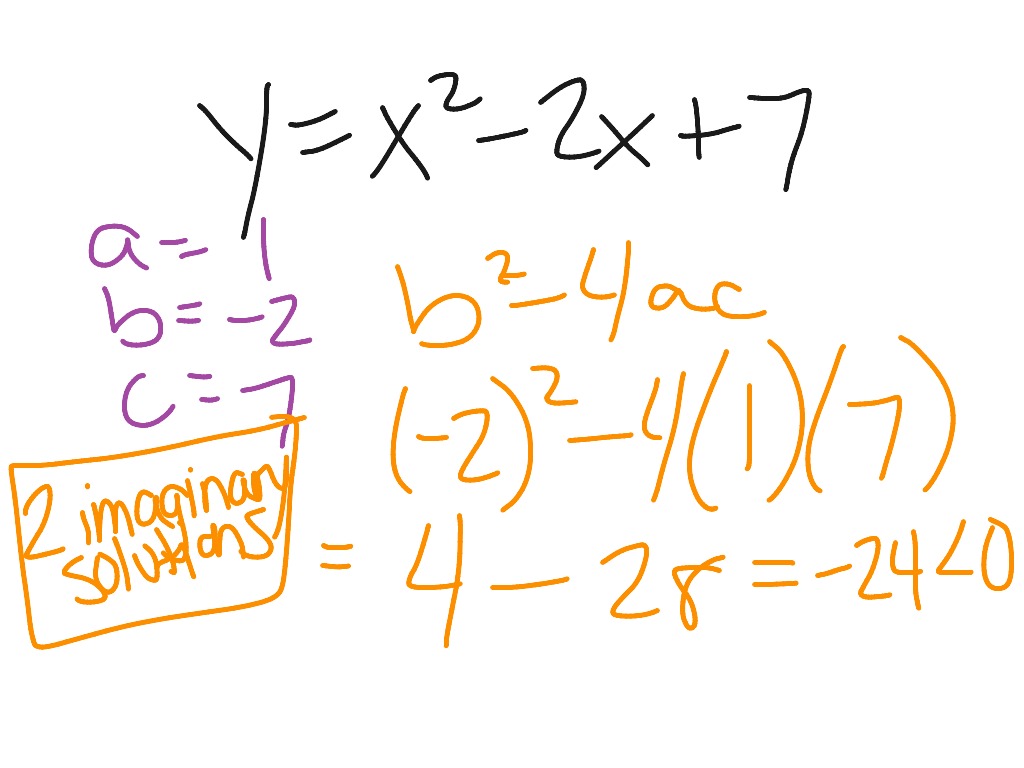 y = x² - 2x + 7
a = 1
b = -2
c = 7
b² - 4ac
(-2)² - 4(1)(7)
= 4 - 28 = -24 < 0
2 imaginary
solutions